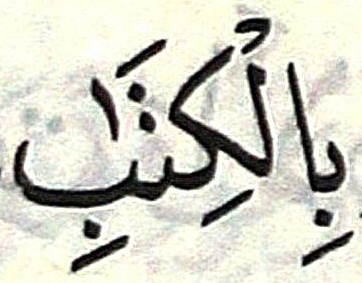 بِالْكِتَٰبِ